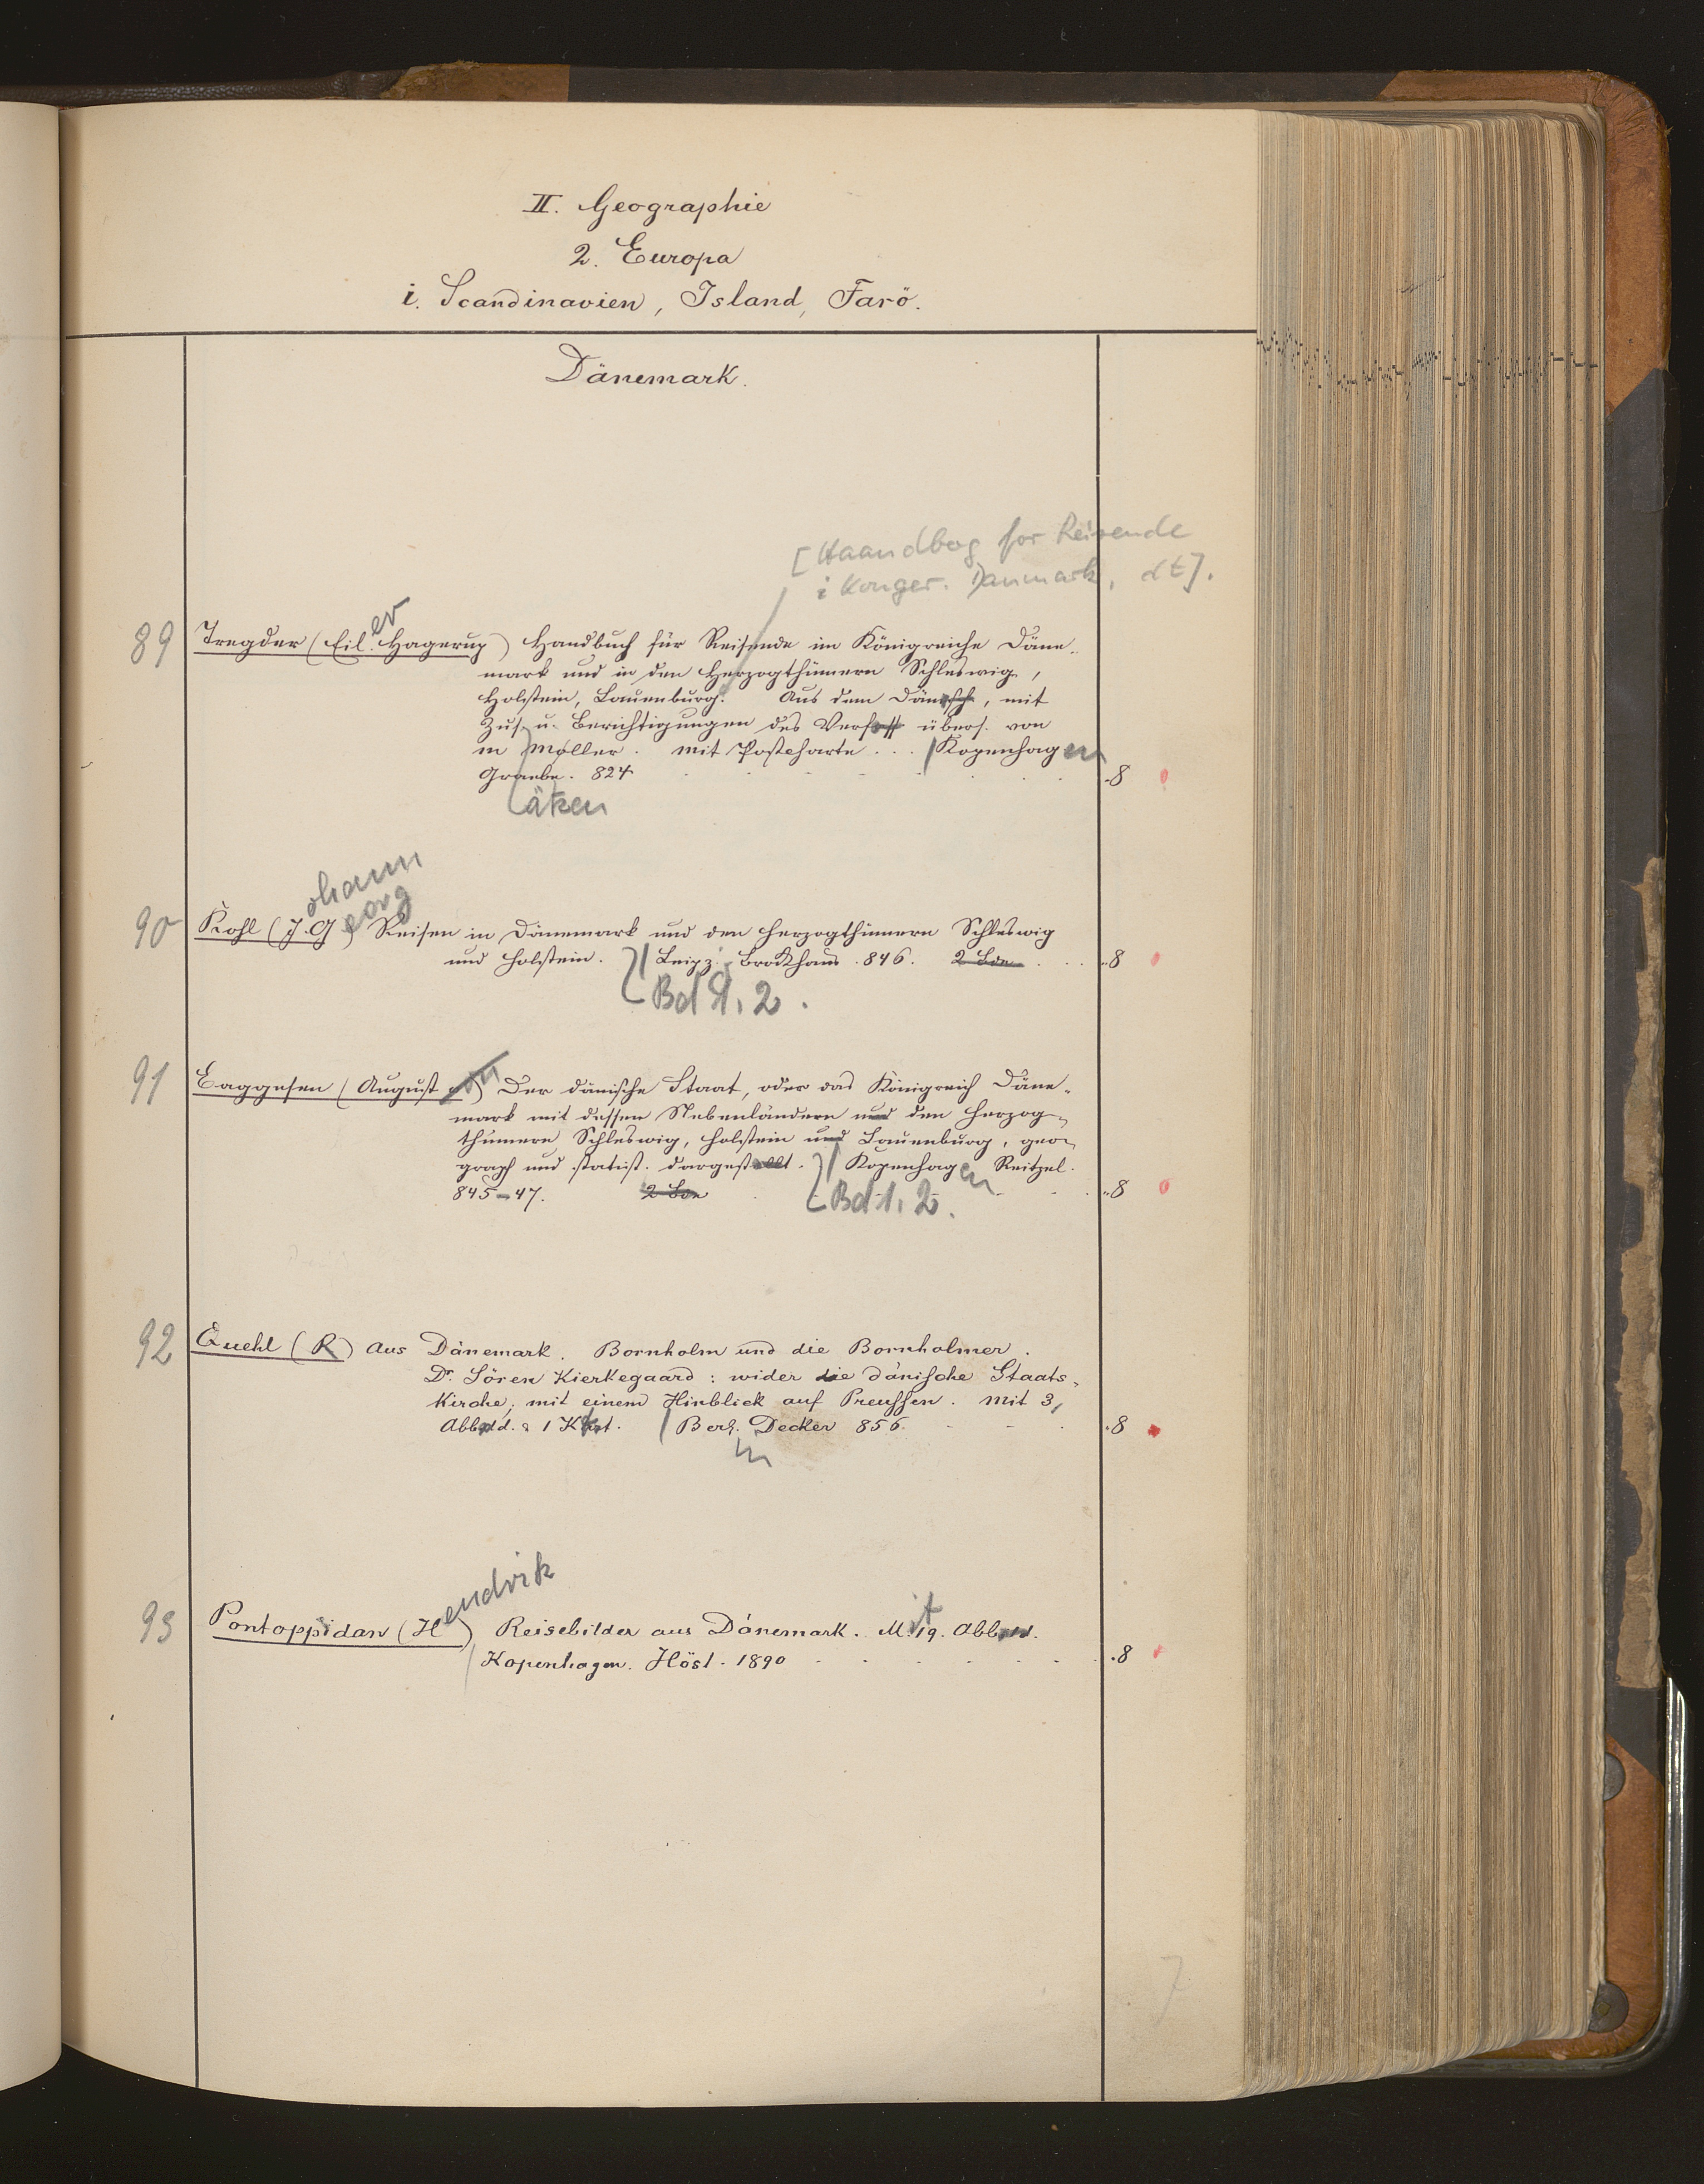 II. Geographie
2. Europa
i. Scandinavien, Island, Farö.
Dänemark.
[Haandbog for Reisende
i Konger. Danmark, dt].
er
89 Tregder (Eil. Hagerup) Handbuch für Reisende im Königreiche Däne-
mark und in den Herzogthümern Schleswig,
Holstein, Lauenburg. Aus dem Dänisch, mit
Zus. u. Berichtigungen des Verfass übers. von
m Møller. mit Postcharte... Kopenhagen
Graebe. 824 8
äken
ohann
eorg
90 Kohl (J. G) Reisen in Dänemark und den Herzogthümern Schleswig
und Holstein. Leipz. Brockhaus. 846. 2 Bde 8
Bd 1, 2.
91 Baggesen (August) Der dänische Staat, oder das Königreich Däne-
mark mit dessen Nebenländern und den Herzog-
thümern Schleswig, Holstein und Lauenburg, geo-
graph und statist. dargestellt. Kopenhagen Reitzel.
845-47. 2 Bde 8
Bd 1, 2.
92 Quehl (R) Aus Dänemark. Bornholm und die Bornholmer.
Dr. Sören Kierkegaard: wider die dänische Staats-
kirche; mit einem Hinblick auf Preussen. Mit 3
Abbdd. & 1 Kt. Berl. Decker 856. 8
in
endrik
93 Pontoppidan (H) Reisebilder aus Dänemark. Mit 19. Abb.
Kopenhagen. Höst. 1890 8
7